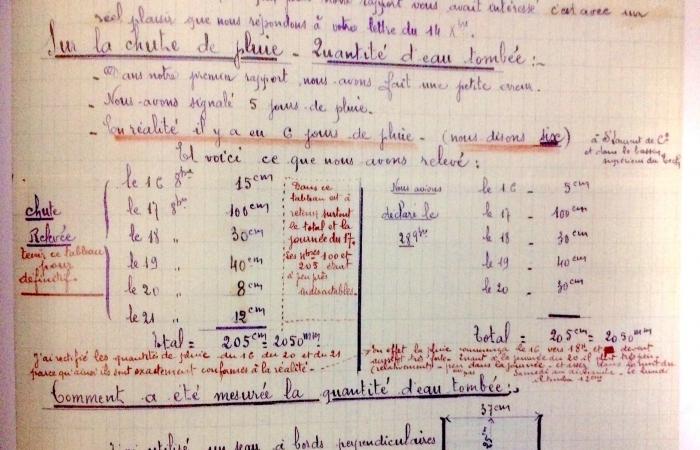 rapport vous avait intéressé c'est avec un
réel plaisir que nous répondons à votre lettre du 14 Xbre
Sur la chute de pluie - Quantité d'eau tombée :-
- Dans notre premier rapport, nous avons fait une petite erreur.
- Nous avons signalé 5 jours de pluie.
- En réalité il y a eu 6 jours de pluie - (nous disons six)
à St Laurent de Cns
et dans le bassin
supérieur du Tech
Et voici ce que nous avons relevé :
chute
Relevée
tenir ce tableau
pour
définitif.
le 16 8bre 15cm
le 17 8bre 100cm
le 18 " 30cm
le 19 " 40cm
le 20 " 8cm
le 21 " 12cm
Total = 205cm = 2050mm
Dans ce
tableau est à
retenir surtout
le total et la
journée du 17.
Les nbres 100 et
205 étant
à peu près
indiscutables.
Nous avions
déclaré le
28 9bre
le 16 - 5cm
le 17 - 100cm
le 18 - 30cm
le 19 - 40cm
le 20 - 30cm
Total = 205cm = 2050mm
J'ai rectifié les quantités de pluie du 16 du 20 et du 21
parce qu'ainsi ils sont exactement conformes à la réalité -
En effet la pluie commença le 16 vers 18h et devint
aussitôt très forte. Quant à la journée du 20 il plut très peu
(relativement) - peu dans la journée - et assez dans la nuit du
Comment a été mesurée la quantité d'eau tombée :-
37cm
utilisé un seau à bords perpendiculaires